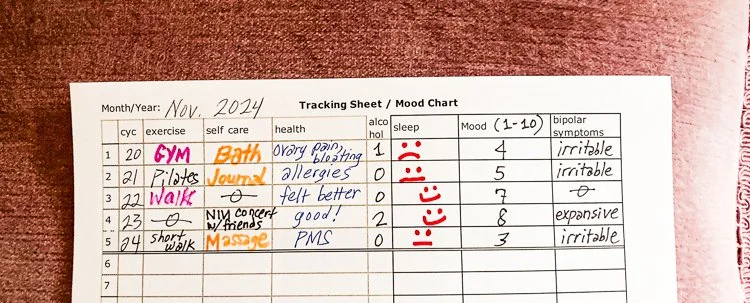 Month/Year: Nov. 2024 Tracking Sheet / Mood Chart
cyc exercise self care health alco hol sleep Mood (1-10) bipolar symptoms
1 20 GYM Bath Ovary pain, bloating 1 4 irritable
2 21 Pilates Journal allergies 0 5 irritable
3 22 Walk felt better 0 7
4 23 NIN concert w/friends good! 2 8 expansive
5 24 short walk Massage PMS 0 3 irritable
6
7
8